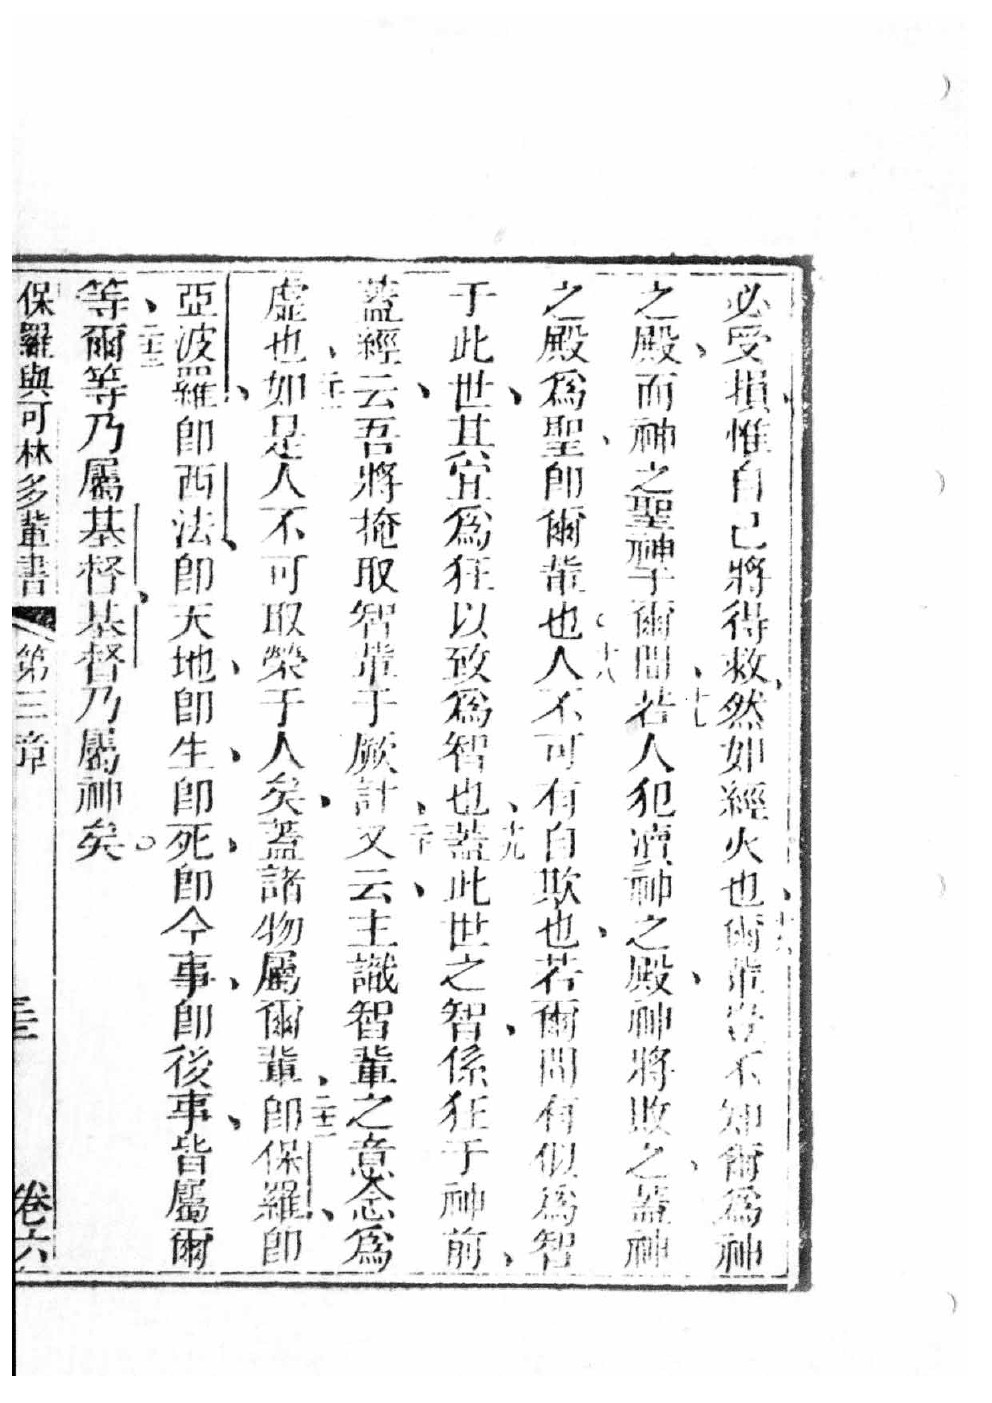 必受損惟自己將得救然如經火也十六爾輩豈不知爾爲神
之殿而神之聖神于爾間十七若人犯瀆神之殿神將敗之蓋神
之殿爲聖卽爾輩也十八人不可有自欺也若爾間有似爲智
于此世其宜爲狂以致爲智也十九蓋此世之智係狂于神前
蓋經云吾將掩取智輩于厥計二十又云主識智輩之意念爲
虛也二十一如是人不可取榮于人矣蓋諸物屬爾輩二十二卽保羅卽
亞波羅卽西法卽天地卽生卽死卽今事卽後事皆屬爾
等二十三爾等乃屬基督基督乃屬神矣
保羅與可林多輩書 第三章 三 卷六